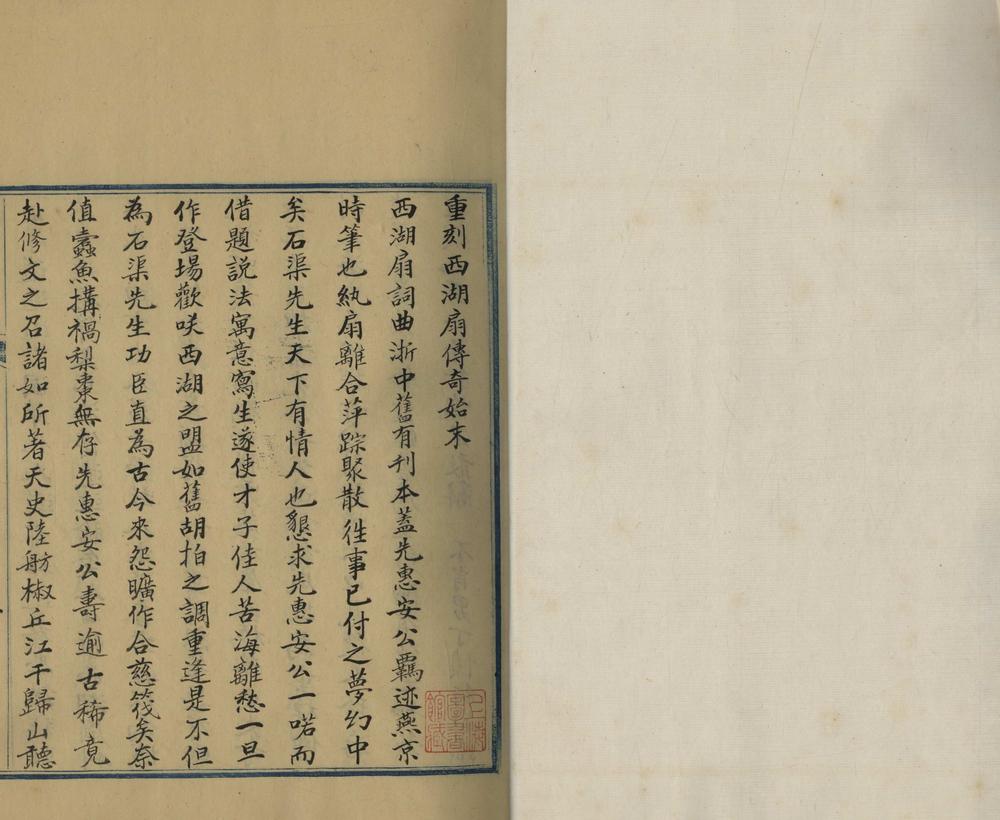 重刻西湖扇傳奇始末
西湖扇詞曲浙中舊有刊本蓋先惠安公羈迹燕京
時筆也紈扇離合萍踪聚散徃事已付之夢幻中
矣石渠先生天下有情人也懇求先惠安公一喏而
借題說法寓意寫生遂使才子佳人苦海離愁一旦
作登場歡咲西湖之盟如舊胡拍之調重逢是不但
為石渠先生功臣直為古今來怨曠作合慈筏矣奈
值蠹魚搆禍梨棗無存先惠安公壽逾古稀竟
赴修文之召諸如所著天史陸舫椒丘江干歸山聽
上海圖書館藏